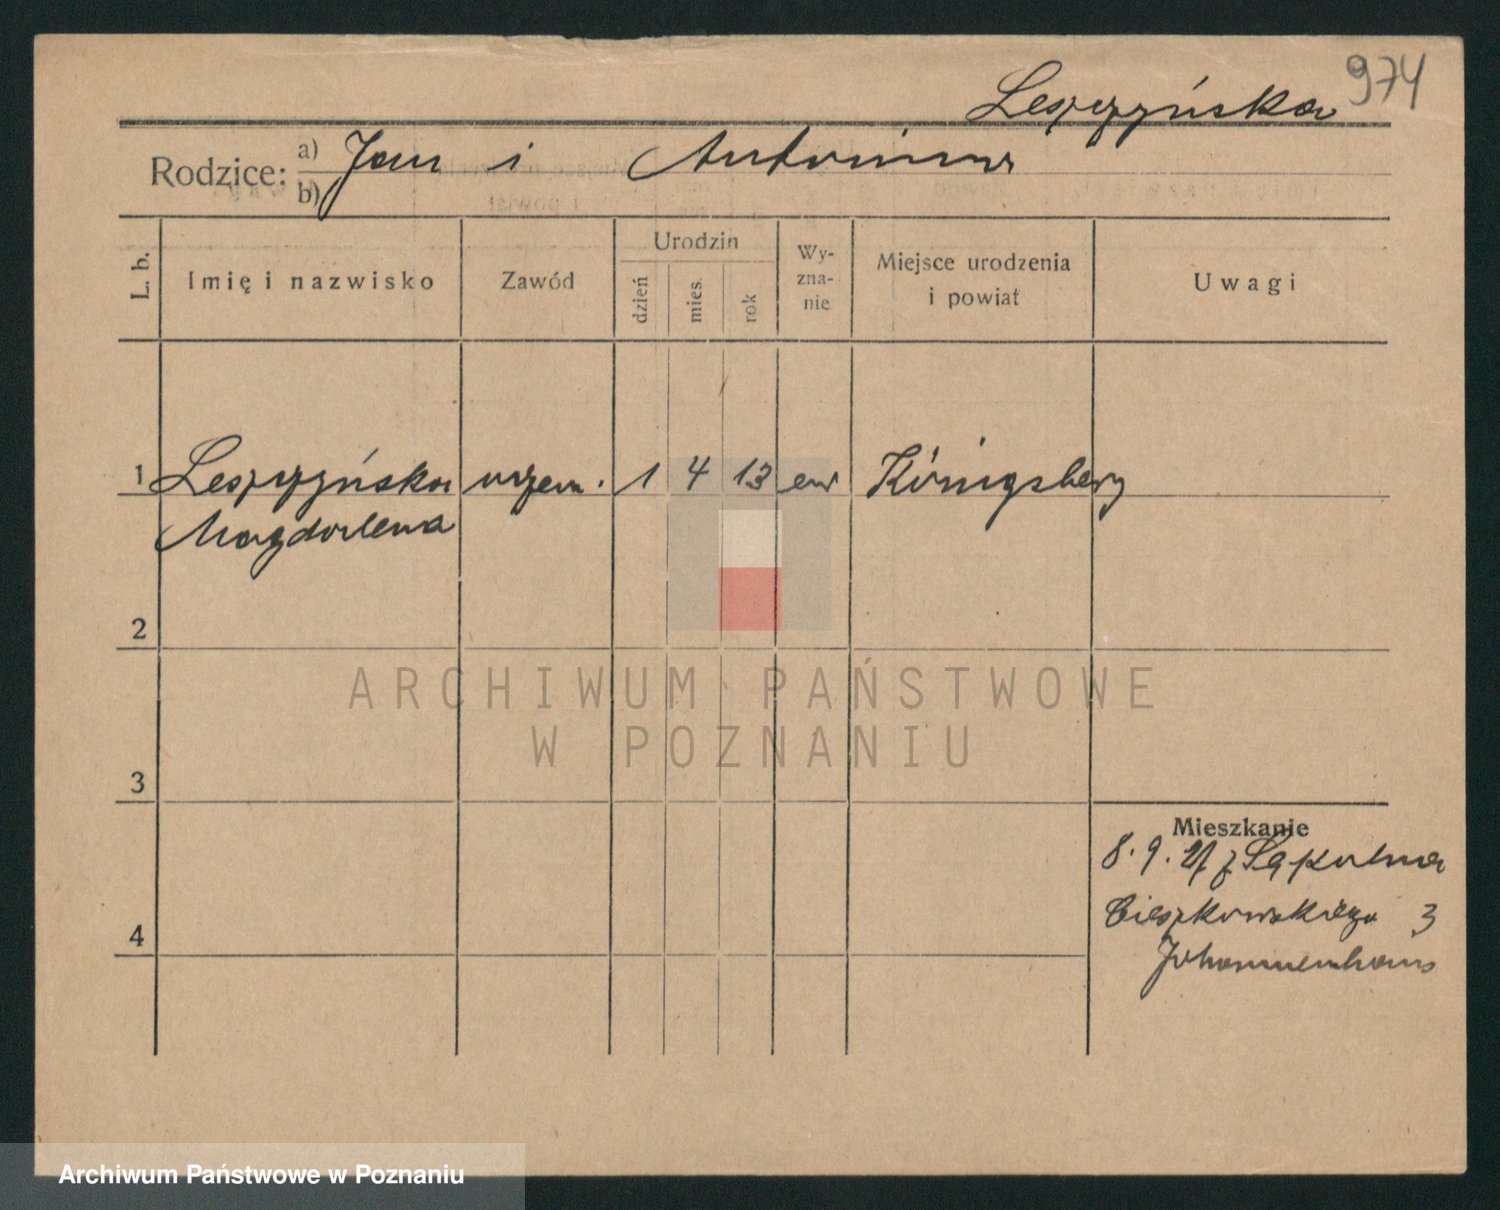 974
Leszczyńska
Rodzice: a) Jan i Antonina
b)
L. b.
Imię i nazwisko
Zawód
Urodzin
dzień
mies.
rok
Wy-
zna-
nie
Miejsce urodzenia
i powiat
Uwagi
1 Leszczyńska uczen. 1 4 13 ew Königsberg
Magdalena
2
3
4
Mieszkanie
8. 9. 21 z
Cieszkowskiego 3
Johannenhaus
ARCHIWUM PAŃSTWOWE
W POZNANIU
Archiwum Państwowe w Poznaniu